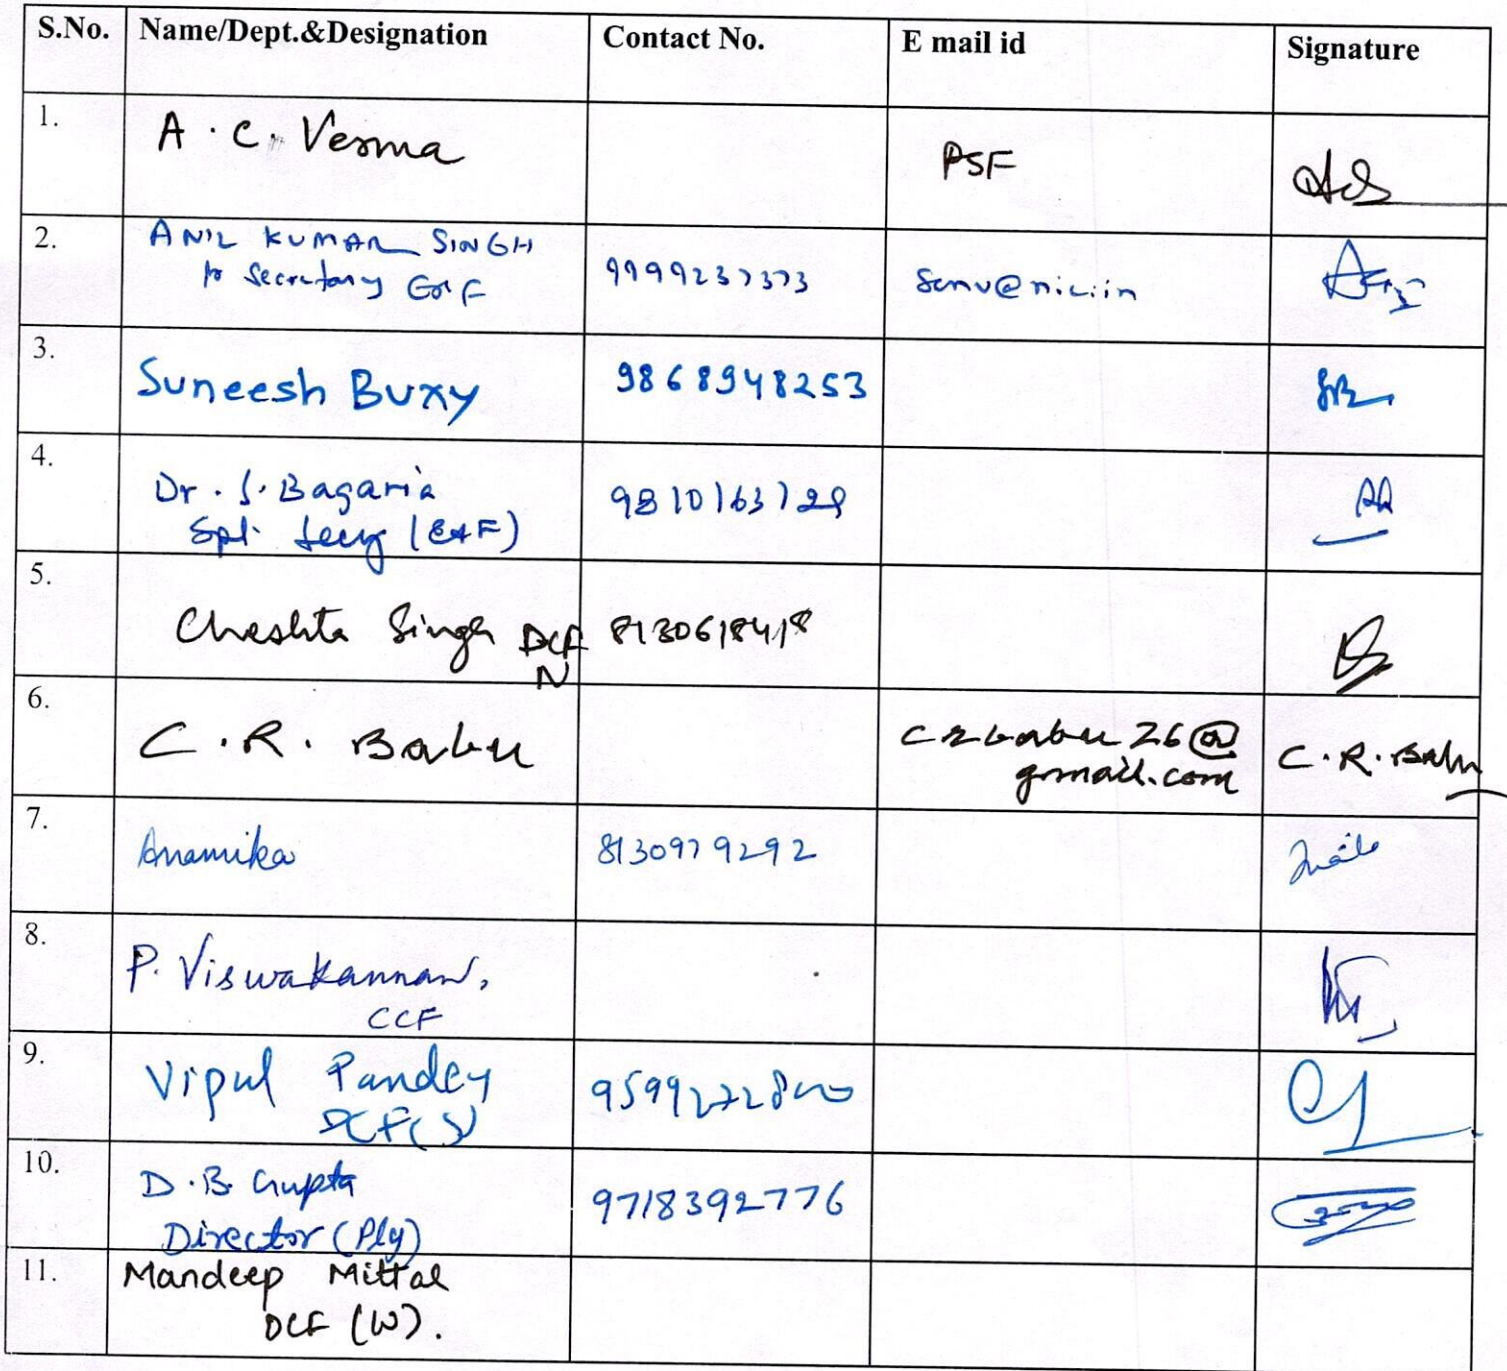 S.No. Name/Dept.&Designation Contact No. E mail id Signature
1. A. C. Verma PSF
2. ANIL KUMAR SINGH
to Secretary E&F 9999237373 Senv@nic.in
3. Suneesh Buxy 9868948253
4. Dr. S. Bagaria 9810163129
Spl. Secy (E&F)
5. Cheshta Singh DCF 8130618418
N
6. C.R. Babu crbabu26@
gmail.com C.R.Babu
7. Anamika 8130979292
8. P. Viswakannan,
CCF
9. Vipul Pandey
DCF(S)
10. D.B. Gupta 9718392776
Director (Plg)
11. Mandeep Mittal
DCF (W).